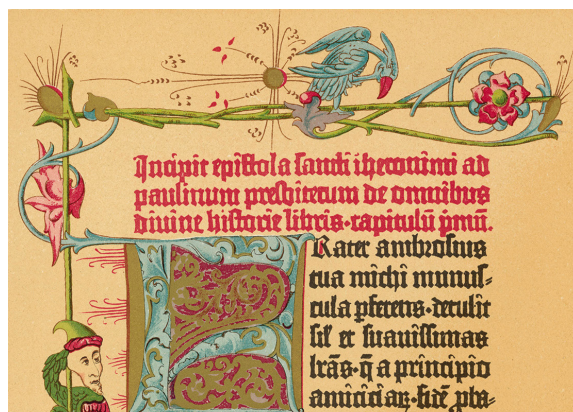 Incipit epistola sancti iheronimi ad
paulinum presbiterum de omnibus
divine historie libris·capitulū p̄mū.
FRater ambrosius
tua michi munus⸗
cula p̲ferens·detulit
sil' et suavissimas
lr̄as·q̄ a principio
amiciciaꝝ·fidē ꝓba⸗